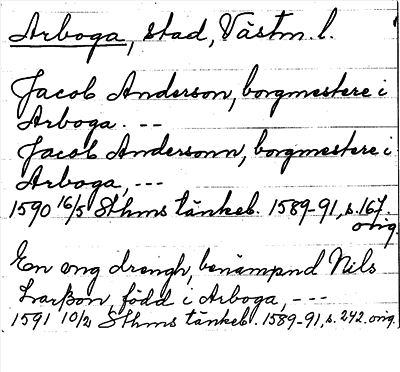 Arboga, stad, Västm. l.
Jacob Anderson, borgmestere i
Arboga. --
Jacob Andersonn, borgmestere i
Arboga, ---
1590 16/5 Sthms tänkeb. 1589-91, s. 167.
orig.
En ong drengh, benämpnd Nils
Larßon, född i Arboga, ---
1591 10/2 Sthms tänkeb. 1589-91, s. 242. orig.